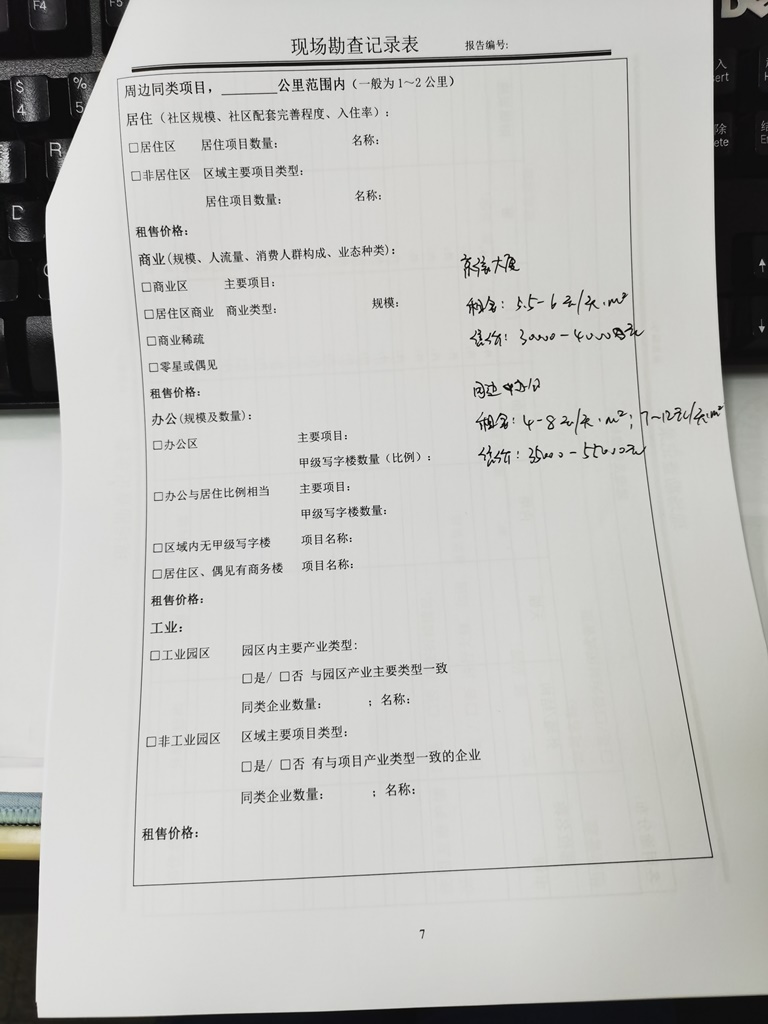 现场勘查记录表 报告编号:
周边同类项目，________公里范围内（一般为1～2公里）
居住（社区规模、社区配套完善程度、入住率）：
□居住区 居住项目数量： 名称：
□非居住区 区域主要项目类型：
居住项目数量： 名称：
租售价格：
商业(规模、人流量、消费人群构成、业态种类)：
大厦
□商业区 主要项目：
□居住区商业 商业类型： 规模：
租金：5.5-6元/天·m²
□商业稀疏
售价：30000-40000元
□零星或偶见
租售价格：
周边办公
办公(规模及数量)：
租金：4-8元/天·m²；7-12元/天·m²
□办公区 主要项目：
甲级写字楼数量（比例）：
售价：35000-55000元
□办公与居住比例相当 主要项目：
甲级写字楼数量：
□区域内无甲级写字楼 项目名称：
□居住区、偶见有商务楼 项目名称：
租售价格：
工业：
□工业园区 园区内主要产业类型：
□是/ □否 与园区产业主要类型一致
同类企业数量： ；名称：
□非工业园区 区域主要项目类型：
□是/ □否 有与项目产业类型一致的企业
同类企业数量： ；名称：
租售价格：
7
F4
F5
$
4
%
5
R
D